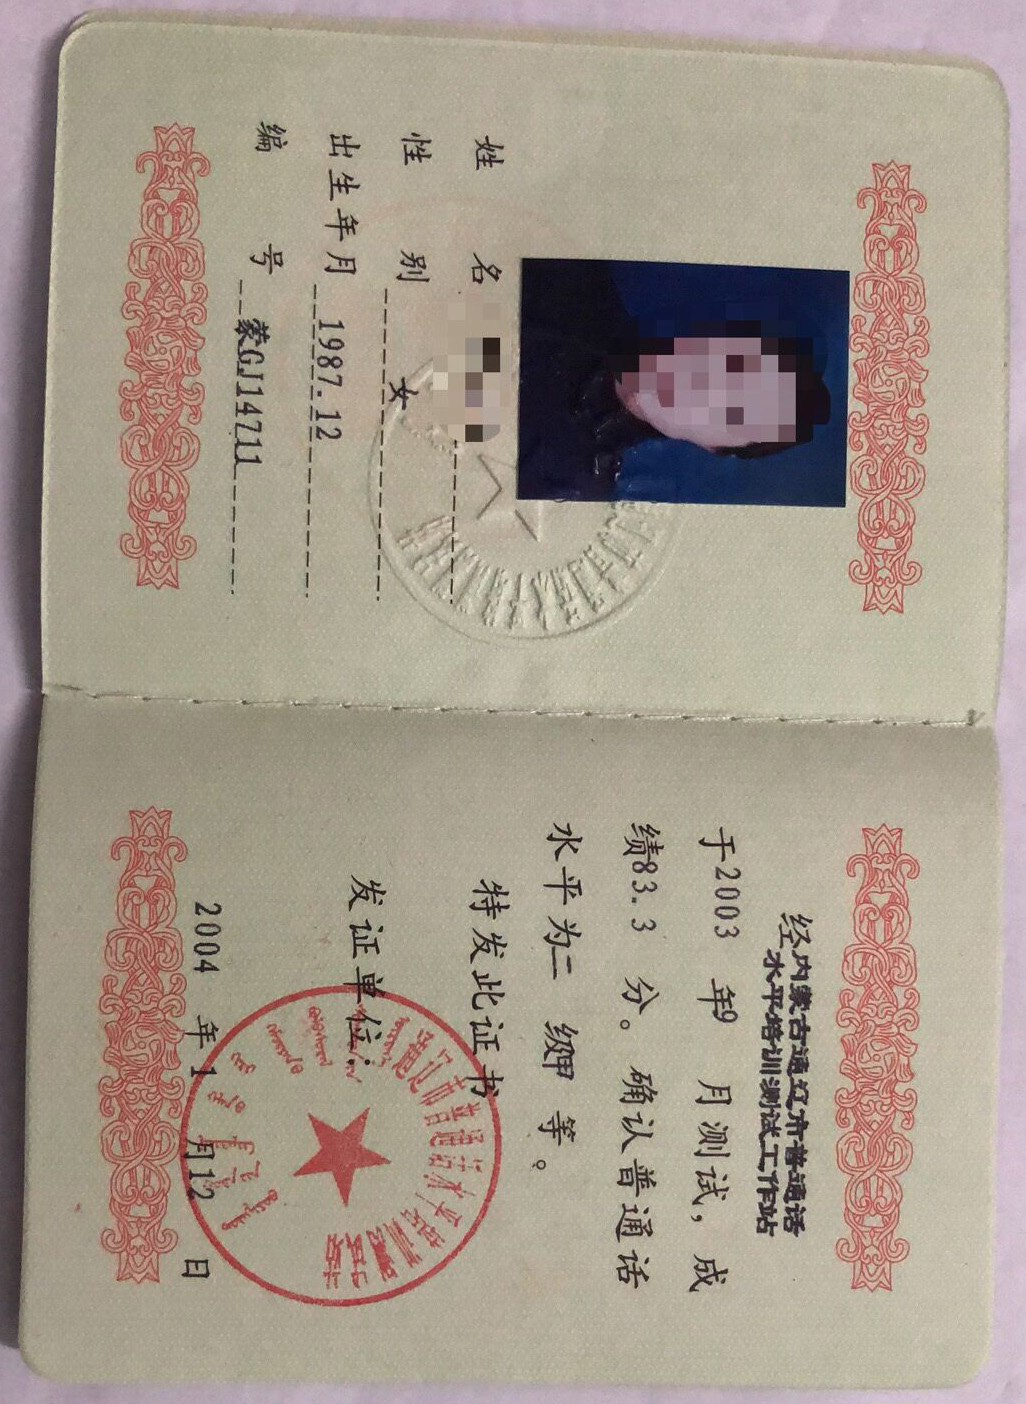 姓名
性别 女
出生年月 1987.12
编号 蒙GJ14711
经内蒙古通辽市普通话
水平培训测试工作站
于2003 年9 月测试，成
绩83.3 分。确认普通话
水平为二 级甲 等。
特发此证书
发证单位：
通辽市普通话水平培训测试工作站
2004 年1 月12 日